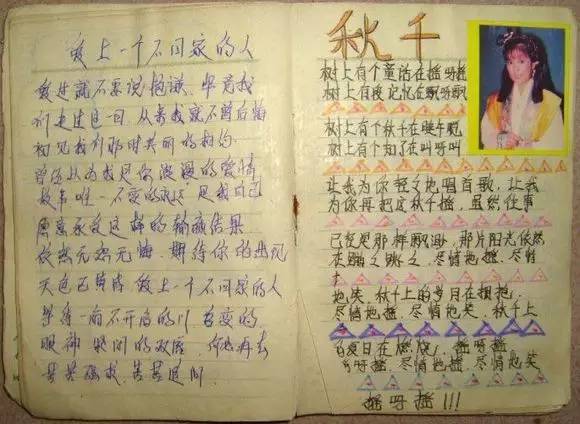 爱上一个不回家的人
爱过就不要说抱谦,毕竟我
们走过这一回,从来我就不曾后悔
初见我们那时共同的相约
曾经以为我是你浪漫的爱情
故事唯一不变的永远,是我自己
愿意承受这样的输赢结果
依然无怨无悔,期待你的出现
天色已黄昏,爱上一个不回家的人
等待一扇不开启的门,善变的
眼神紧闭的双唇,何必再去
苦苦强求,苦苦追问
秋千
树上有个童话在摇呀摇
树上有段记忆在飘呀飘
树上有个秋千在睡午觉
树上有个知了在叫呀叫
让我为你轻轻地唱首歌,让我
为你再把这秋千摇,虽然往事
已经是那样飘渺,那片阳光依然
在跳 跳,尽情地摇,尽情
地笑,秋千上的岁月在拥抱,
尽情地摇,尽情地笑,秋千上
的夏日在燃烧,摇呀摇
呀摇,尽情地摇,尽情地笑
摇呀摇!!!